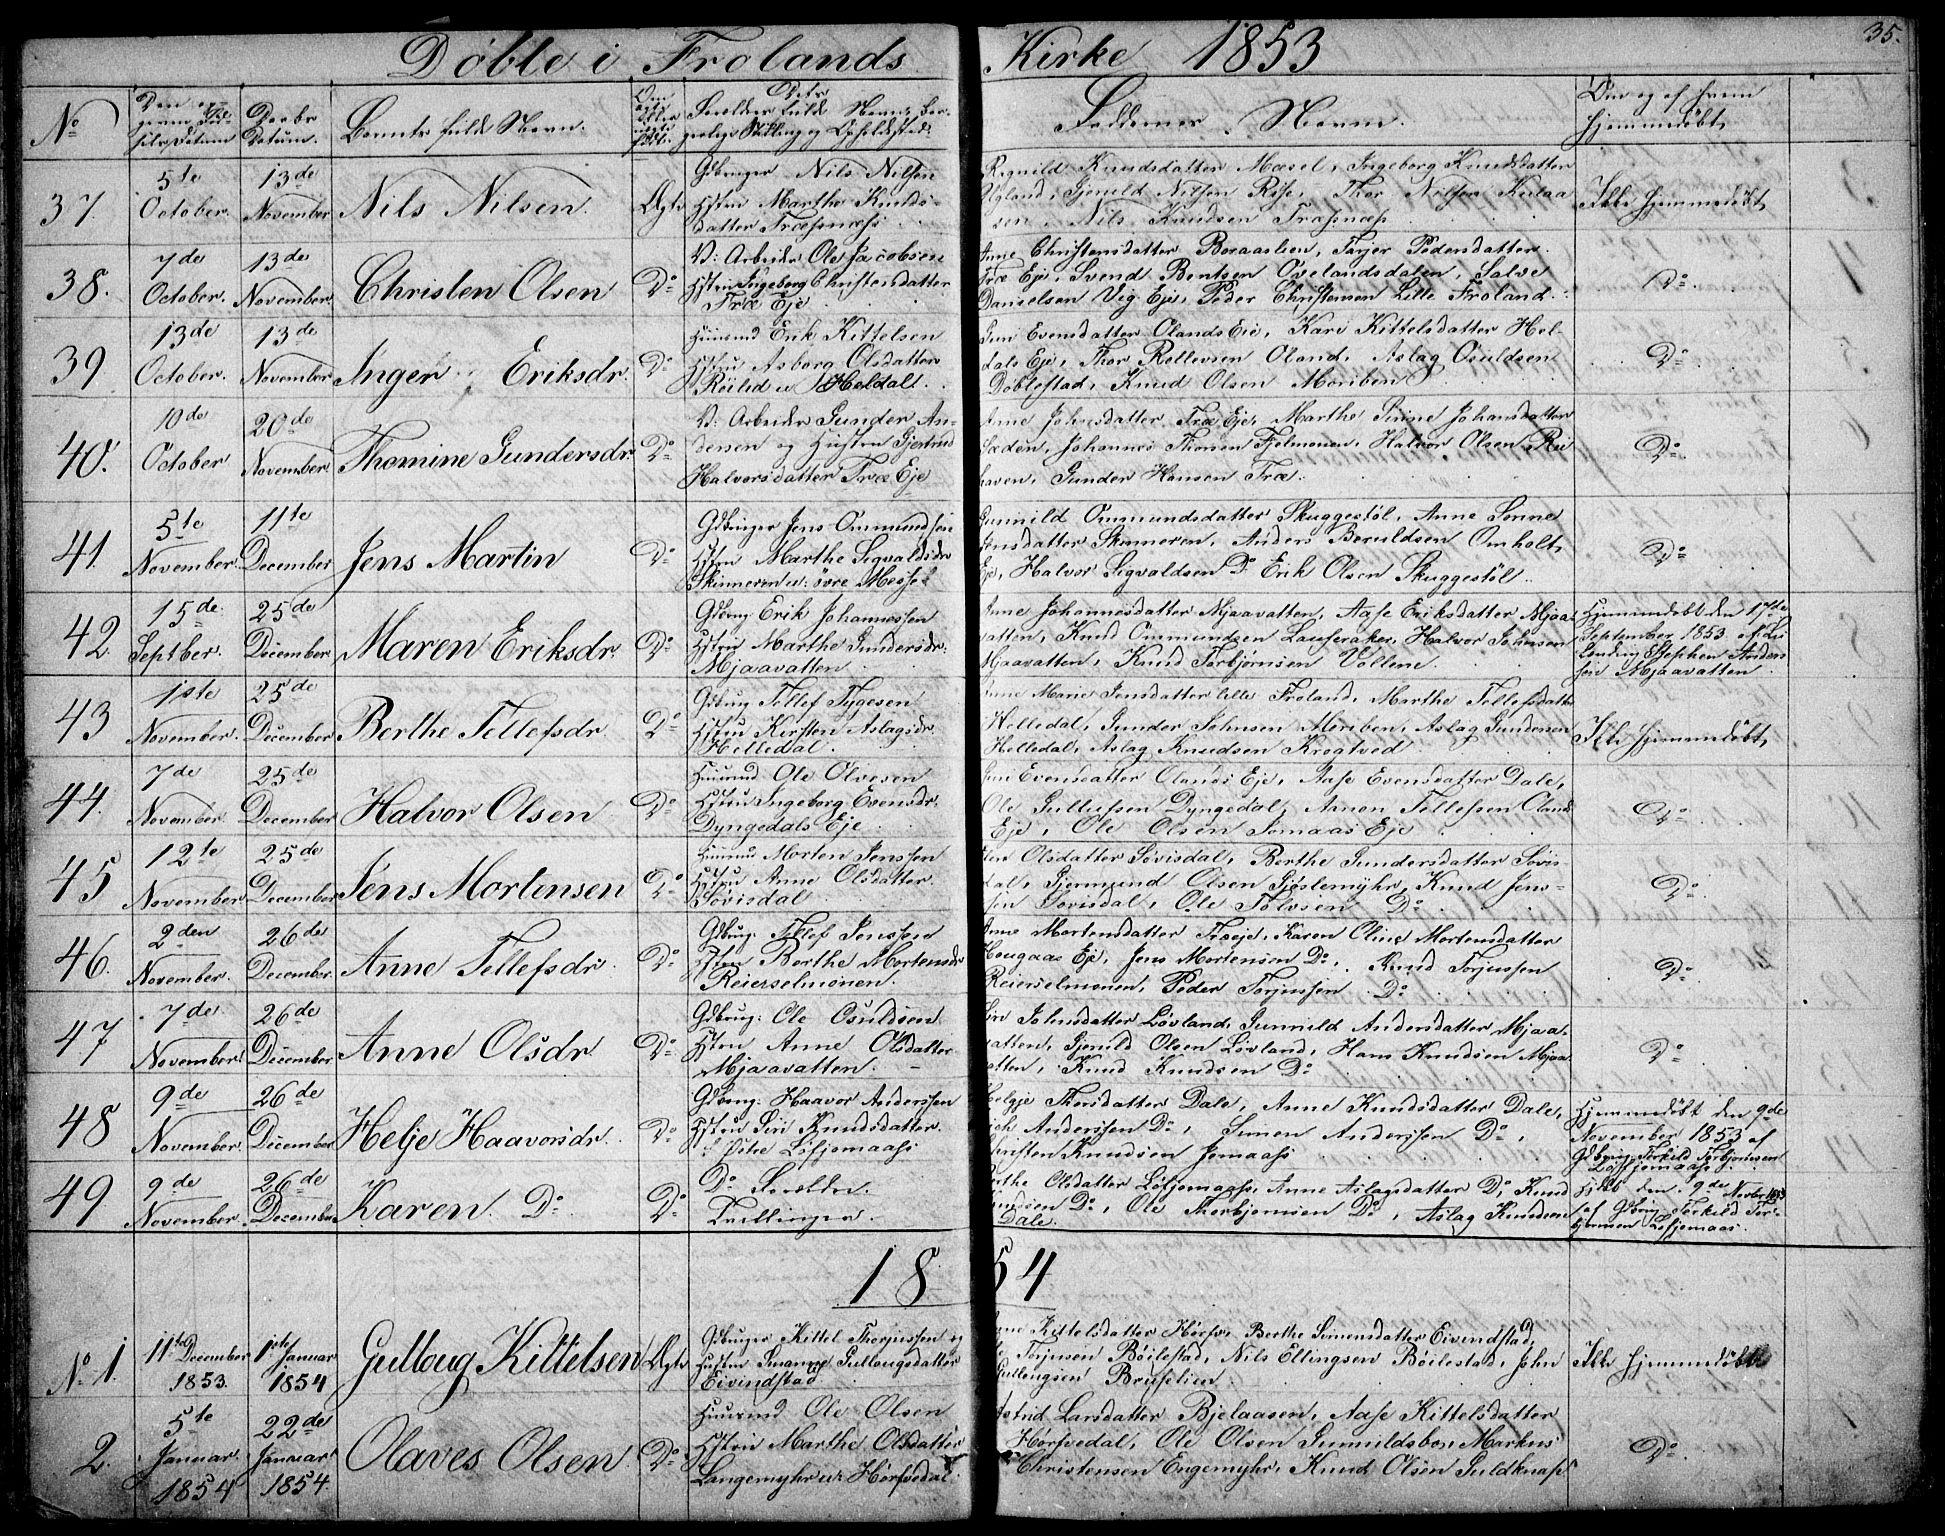 35.
Døbte i Frolands Kirke 1853
No
Datum
Daabs Datum.
Barnets fulde Navn.
Faddernes Navne.
Om og af hvem
hjemmedøbt,
37. 5te October. 13de November Nils Nilsen. Ægte
Gdbruger Nils Nilsen
Hstru Marthe Knuds-
datter Træsnæs
Ragnild Knudsdatter Mæsel, Ingeborg Knudsdatter
Ugland, Gjeruld Nilsen Rise, Thor Nilsen
Nils Knudsen Træsnæs
Ikke hjemmedøbt,
38. 7de October. 13de November. Christen Olsen Do
Arbeider Ole Jacobsen
Hstru Ingeborg Christensdatter
Træ Eje
Anne Christensdatter Boraaslien, Tarjer Pedersdatter
Træ Eje, Svend Bentsen Øvelandsdalen, Salve
Danielsen Vig Eje, Peder Christensen Lille Froland.
Do
39 13de October. 13de November Inger Eriksdr. Do
Huusmd Erik Kittelsen
Hstru Asborg Olsdatter
Røilid u/ Heldal.
Guri Evensdatter Olands Eie, Kari Kittelsdatter Hel-
dals Eje, Thor Rollevsen Oland, Aslag Osuldsen
Døblestad, Knud Olsen Moriben
Do
40. 10de October 20de November. Thomine Gundersdr. Do
Arbeider Gunder An-
dersen og Hustru Gjertrud
Halvorsdatter Træ Eje
Anne Johnsdatter Træ Eje, Marthe Sirine Johansdatter
Laden, Johannes Thorsen Fjelmonen, Halvor Olsen Rei
haven, Gunder Hansen Træ.
Do
41. 5te November. 11te December Jens Martin Do
Gdbruger Jens Ommundsen
Hstru Marthe Sigvaldsdr
Skinneren u. øvre Messel
Gunnild Ommundsdatter Skuggestøl, Anne Sonne
Jensdatter Skinneren, Anders Beruldsen Omholt
Eje, Halvor Sigvaldsen Do Erik Olsen Skuggestøl.
Do
42. 15de Septber. 25de December Maren Eriksdr. Do
Gdbrug Erik Johannessen
Hstru Marthe Gundersdr.
Mjaavatten
Anne Johannesdatter Mjaavatten, Aase Eriksdatter Mjaa-
vatten, Knud Ommundsen Lauveraker, Halvor Johnsen
Mjaavatten, Knud Torbjørnsen Vollene.
Hjemmedøbt den 17de
September 1853 af
Stephen Anders
sen Mjaavatten.
43 1ste November. 25de December. Berthe Tellefsdr. Do
Gdbrug Tellef Tygesen
Hstru Kirsten Aslagsdr.
Helledal.
Anne Marie Jensdatter lille Froland, Marthe Tellefsdatter
Helledal, Gunder Johnsen Moriben, Aslag Gundersen
Helledal, Aslag Knudsen Krogtved
Ikke hjemmedøbt,
44. 7de November. 25de December Halvor Olsen Do
Huusmd Ole Olvesen
Hstru Ingeborg Evensdr.
Dyngedals Eje
Evensdatter Olands Eje, Aase Evensdatter Dale,
Ole Gullufsen Dyngedal, Arnon Tellefsen Olands
Eje, Ole Olsen Jomaas Eje
Do
45 12te November 25de December Jens Mortensen Do
Huusmd Morten Jenssen
Hstru Anne Olsdatter
Sovisdal
Olsdatter Søvisdal, Berthe Gundersdatter Søvis-
dal, Gjermund Olsen Gjøslemyhr, Knud Jens-
sen Sovisdal, Ole Tolvsen Do
Do
46. 2den November. 26de December. Anne Tellefsdr. Do
Gdbrug. Tellef Jenssen
Hstru Berthe Mortensdr
Reierselmonen.
Anne Mortensdatter Træeje, Karen Oline Mortensdatter
Hougaas Eje, Jens Mortensen Do, Knud Torjussen
Reierselmonen, Peder Torjussen Do
Do
47 7de November. 26de December Anne Olsdr. Do
Gdbrug. Ole Osuldsen
Hstru Anne Olsdatter
Mjaavatten.
Siri Johnsdatter Løvland, Gunnild Andersdatter Mjaa-
vatten, Gjeruld Olsen Løvland, Hans Knudsen Mjaa
vatten, Knud Knudsen Do
Do
48 9de November. 26de December Helje Haavorsdr. Do
Gdbrug. Haavor Anderssen
Hstru Siri Knudsdatter
Østre Løfjomaas
Helgje Thorsdatter Dale, Anne Knudsdatter Dale,
Anderssen Do, Simen Anderssen Do,
Christen Knudsen Jomaas
Hjemmedøbt den 9de
November 1853 af
Gdbrug. Terkild Torbjørnsen
Løfjomaas.
49 9de November. 26de December Karen. Do Do
Do Forældre.
Tvillinger.
Berthe Olsdatter Løfjomaas, Anne Aslagsdatter Do, Knud
Knudsen Do, Ole Thorbjørnsen Do, Aslag Knudsen
Dale.
Hjdbt den 9de Novbr 1853
af Gdbrug Terkild Tor-
bjørnsen Løfjomaas.
1854
No 1. 11te December 1853. 1ste Januar 1854 Gulloug Kittelsen Ægte
Gdbruger Kittel Thorjussen og
Hustru Gullougsdatter
Eivindstad
Kittelsdatter Hørsv, Berthe Simensdatter Eivindstad,
Torjusen Bøilestad, Nils Ellingsen Bøilestad, John
Gullougsen Bruselien
Ikke hjemmedøbt
2. 5te Januar. 1854 22de Januar 1854. Olaves Olsen Do
Huusmd Ole Olsen
Hstru Marthe Olsdatter
Langemyhr u/ Hørsvedal.
Astrid Larsdatter Bjelaasen, Aase Kittelsdatter
Hørsvedal, Ole Olsen Gunnildsbo, Markus
Christensen Engemyhr, Knud Olsen Guldknap
Do